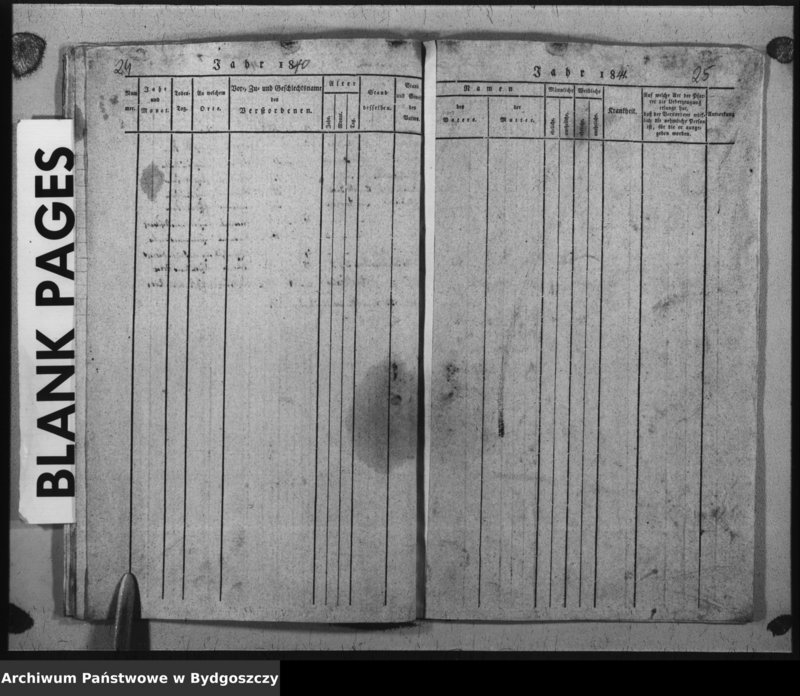 BLANK PAGES
24
Jahr 1840
Num
mer.
Jahr
und
Monat.
Todes-
Tag.
An welchem
Orte.
Vor-, Zu- und Geschlechtsname
des
Verstorbenen.
Alter
Jahr.
Monat.
Tag.
Stand
desselben.
Stand
des
Vaters.
Jahr 184
25
Namen
des
Vaters.
der
Mutter.
Männliche
Weibliche
eheliche.
uneheliche.
eheliche.
uneheliche.
Krankheit.
Auf welche Art der Pfar-
rer die Ueberzeugung
erlangt hat,
daß der Verstorbene wirk-
lich die nehmliche Person
ist, für die er ausge-
geben worden.
Anmerkung
Archiwum Państwowe w Bydgoszczy